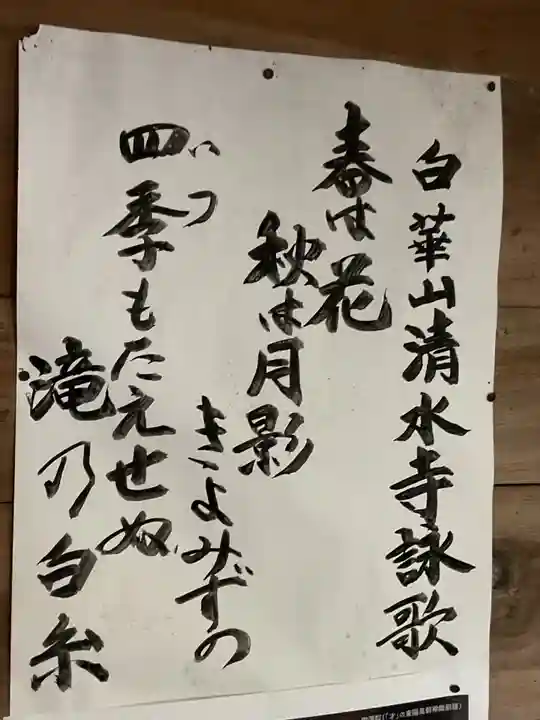 白華山清水寺詠歌
春は花
秋は月影
きよみずの
四季もたえせぬ
いつ
滝乃白糸